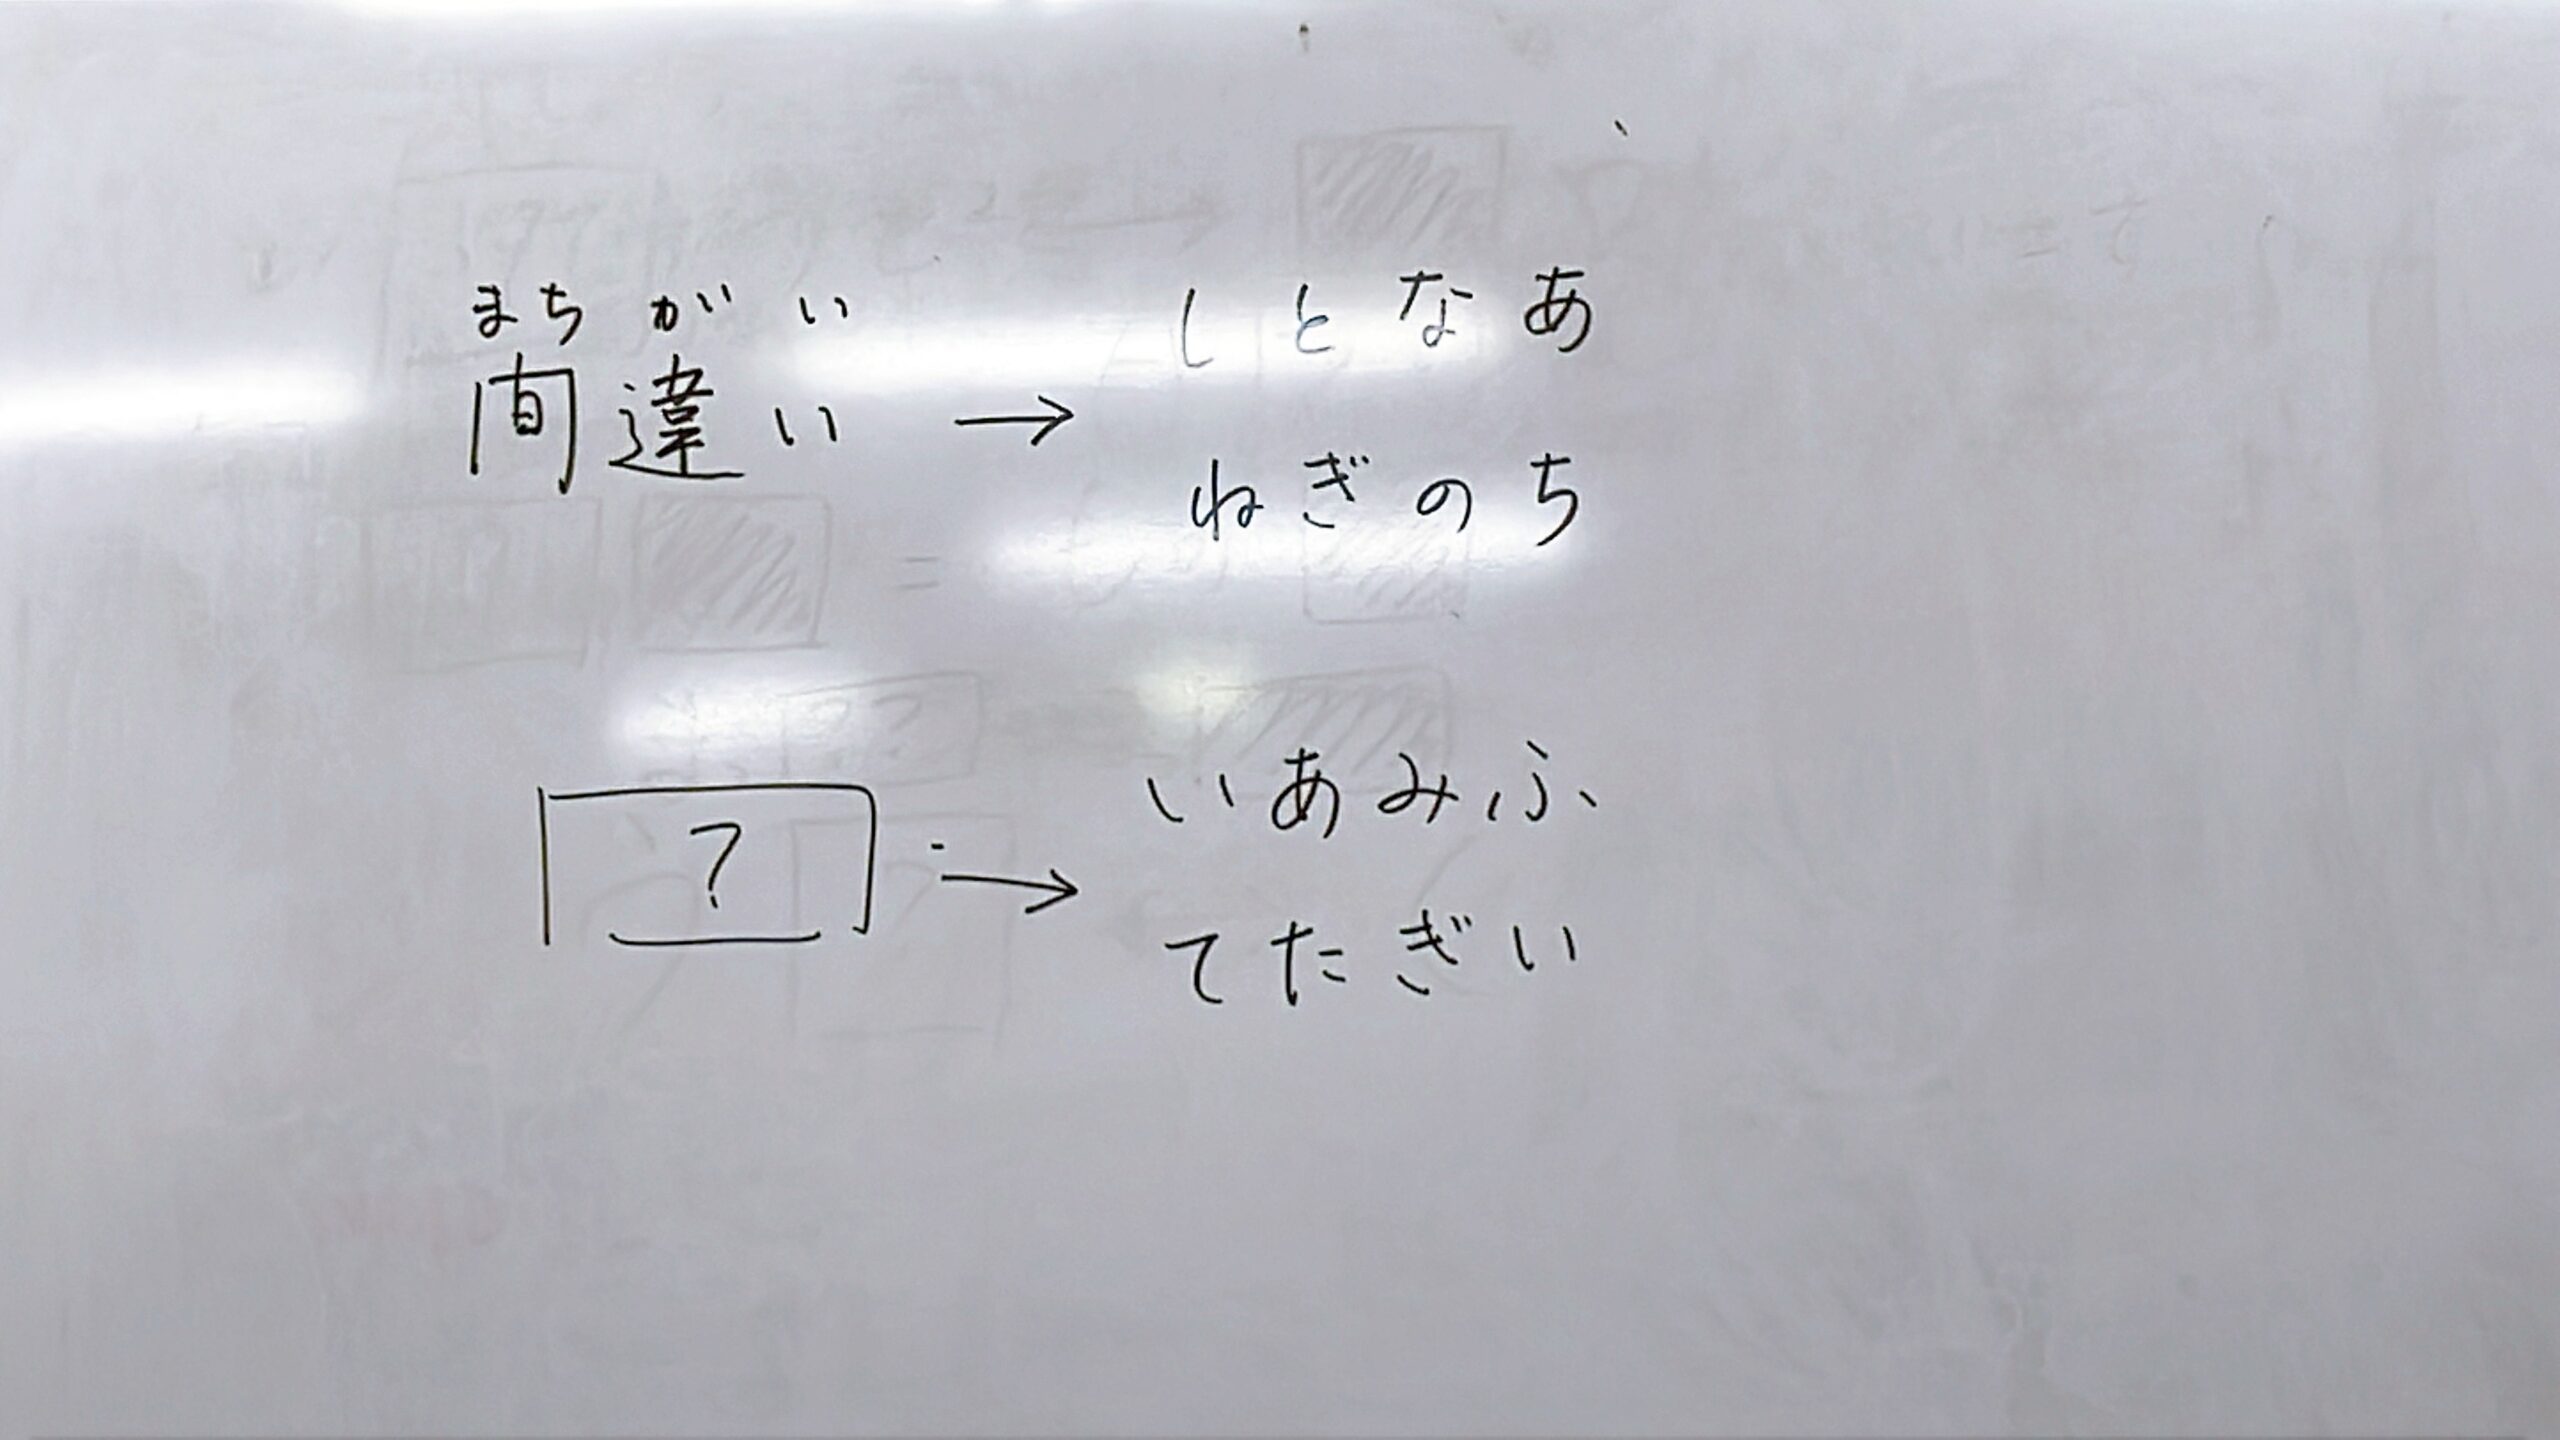 まちがい
間違い → しとなあ
ねぎのち
? → いあみふ
てたぎい